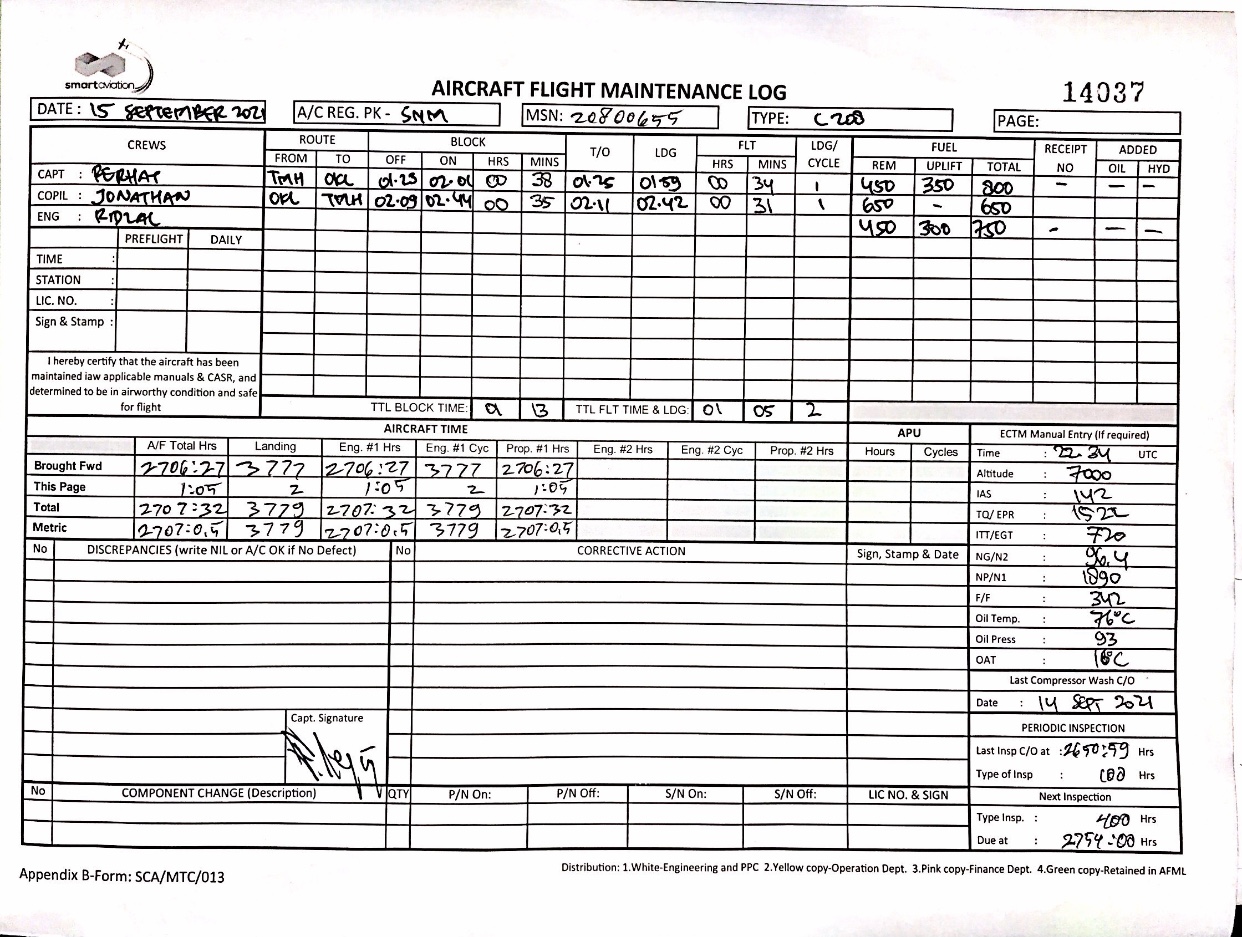 smartaviation
AIRCRAFT FLIGHT MAINTENANCE LOG
14037
DATE : 15 SEPTEMBER 2021 A/C REG. PK - SNM MSN: 20800655 TYPE: C208 PAGE:
CREWS ROUTE BLOCK T/O LDG FLT LDG/ CYCLE FUEL RECEIPT NO ADDED
FROM TO OFF ON HRS MINS HRS MINS REM UPLIFT TOTAL OIL HYD
CAPT : FERHAT TMH OKL 01.23 02.01 00 38 01.25 01.59 00 34 1 450 350 800 - - -
COPIL : JONATHAN OKL TMH 02.09 02.44 00 35 02.11 02.42 00 31 1 650 - 650
ENG : 450 300 750 - - -
PREFLIGHT DAILY
TIME :
STATION :
LIC. NO. :
Sign & Stamp :
I hereby certify that the aircraft has been
maintained iaw applicable manuals & CASR, and
determined to be in airworthy condition and safe
for flight
TTL BLOCK TIME: 01 13 TTL FLT TIME & LDG: 01 05 2
AIRCRAFT TIME APU ECTM Manual Entry (If required)
A/F Total Hrs Landing Eng. #1 Hrs Eng. #1 Cyc Prop. #1 Hrs Eng. #2 Hrs Eng. #2 Cyc Prop. #2 Hrs Hours Cycles
Brought Fwd 2706:27 3777 2706:27 3777 2706:27
This Page 1:05 2 1:05 2 1:05
Total 2707:32 3779 2707:32 3779 2707:32
Metric 2707:0,5 3779 2707:0,5 3779 2707:0,5
Time : 22.34 UTC
Altitude : 7000
IAS : 142
TQ/ EPR : 1522
ITT/EGT : 720
NG/N2 : 96.4
NP/N1 : 1890
F/F : 342
Oil Temp. : 76°C
Oil Press : 93
OAT : 18°C
No DISCREPANCIES (write NIL or A/C OK if No Defect) No CORRECTIVE ACTION Sign, Stamp & Date
Last Compressor Wash C/O
Date : 14 SEPT 2021
Capt. Signature
PERIODIC INSPECTION
Last Insp C/O at : 2650:59 Hrs
Type of Insp : 100 Hrs
No COMPONENT CHANGE (Description) QTY P/N On: P/N Off: S/N On: S/N Off: LIC NO. & SIGN
Next Inspection
Type Insp. : 400 Hrs
Due at : 2754:00 Hrs
Distribution: 1.White-Engineering and PPC 2.Yellow copy-Operation Dept. 3.Pink copy-Finance Dept. 4.Green copy-Retained in AFML
Appendix B-Form: SCA/MTC/013